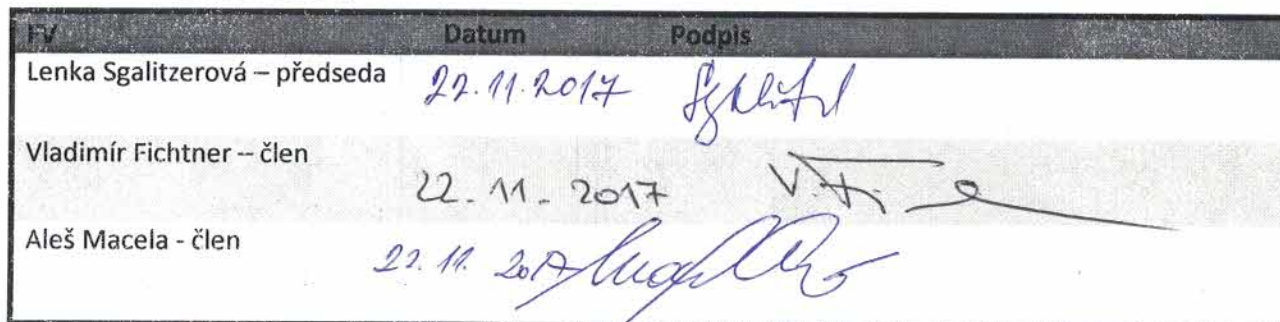 FV Datum Podpis
Lenka Sgalitzerová – předseda 22.11.2017
Vladimír Fichtner – člen 22. 11. 2017
Aleš Macela - člen 22. 11. 2017